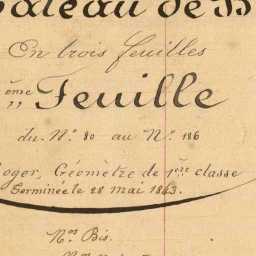 de
En trois feuilles
ème Feuille
du N.º 80 au N.º 186
Géomètre de 1ère classe
Terminée le 28 mai 1843.
Nos Bis.